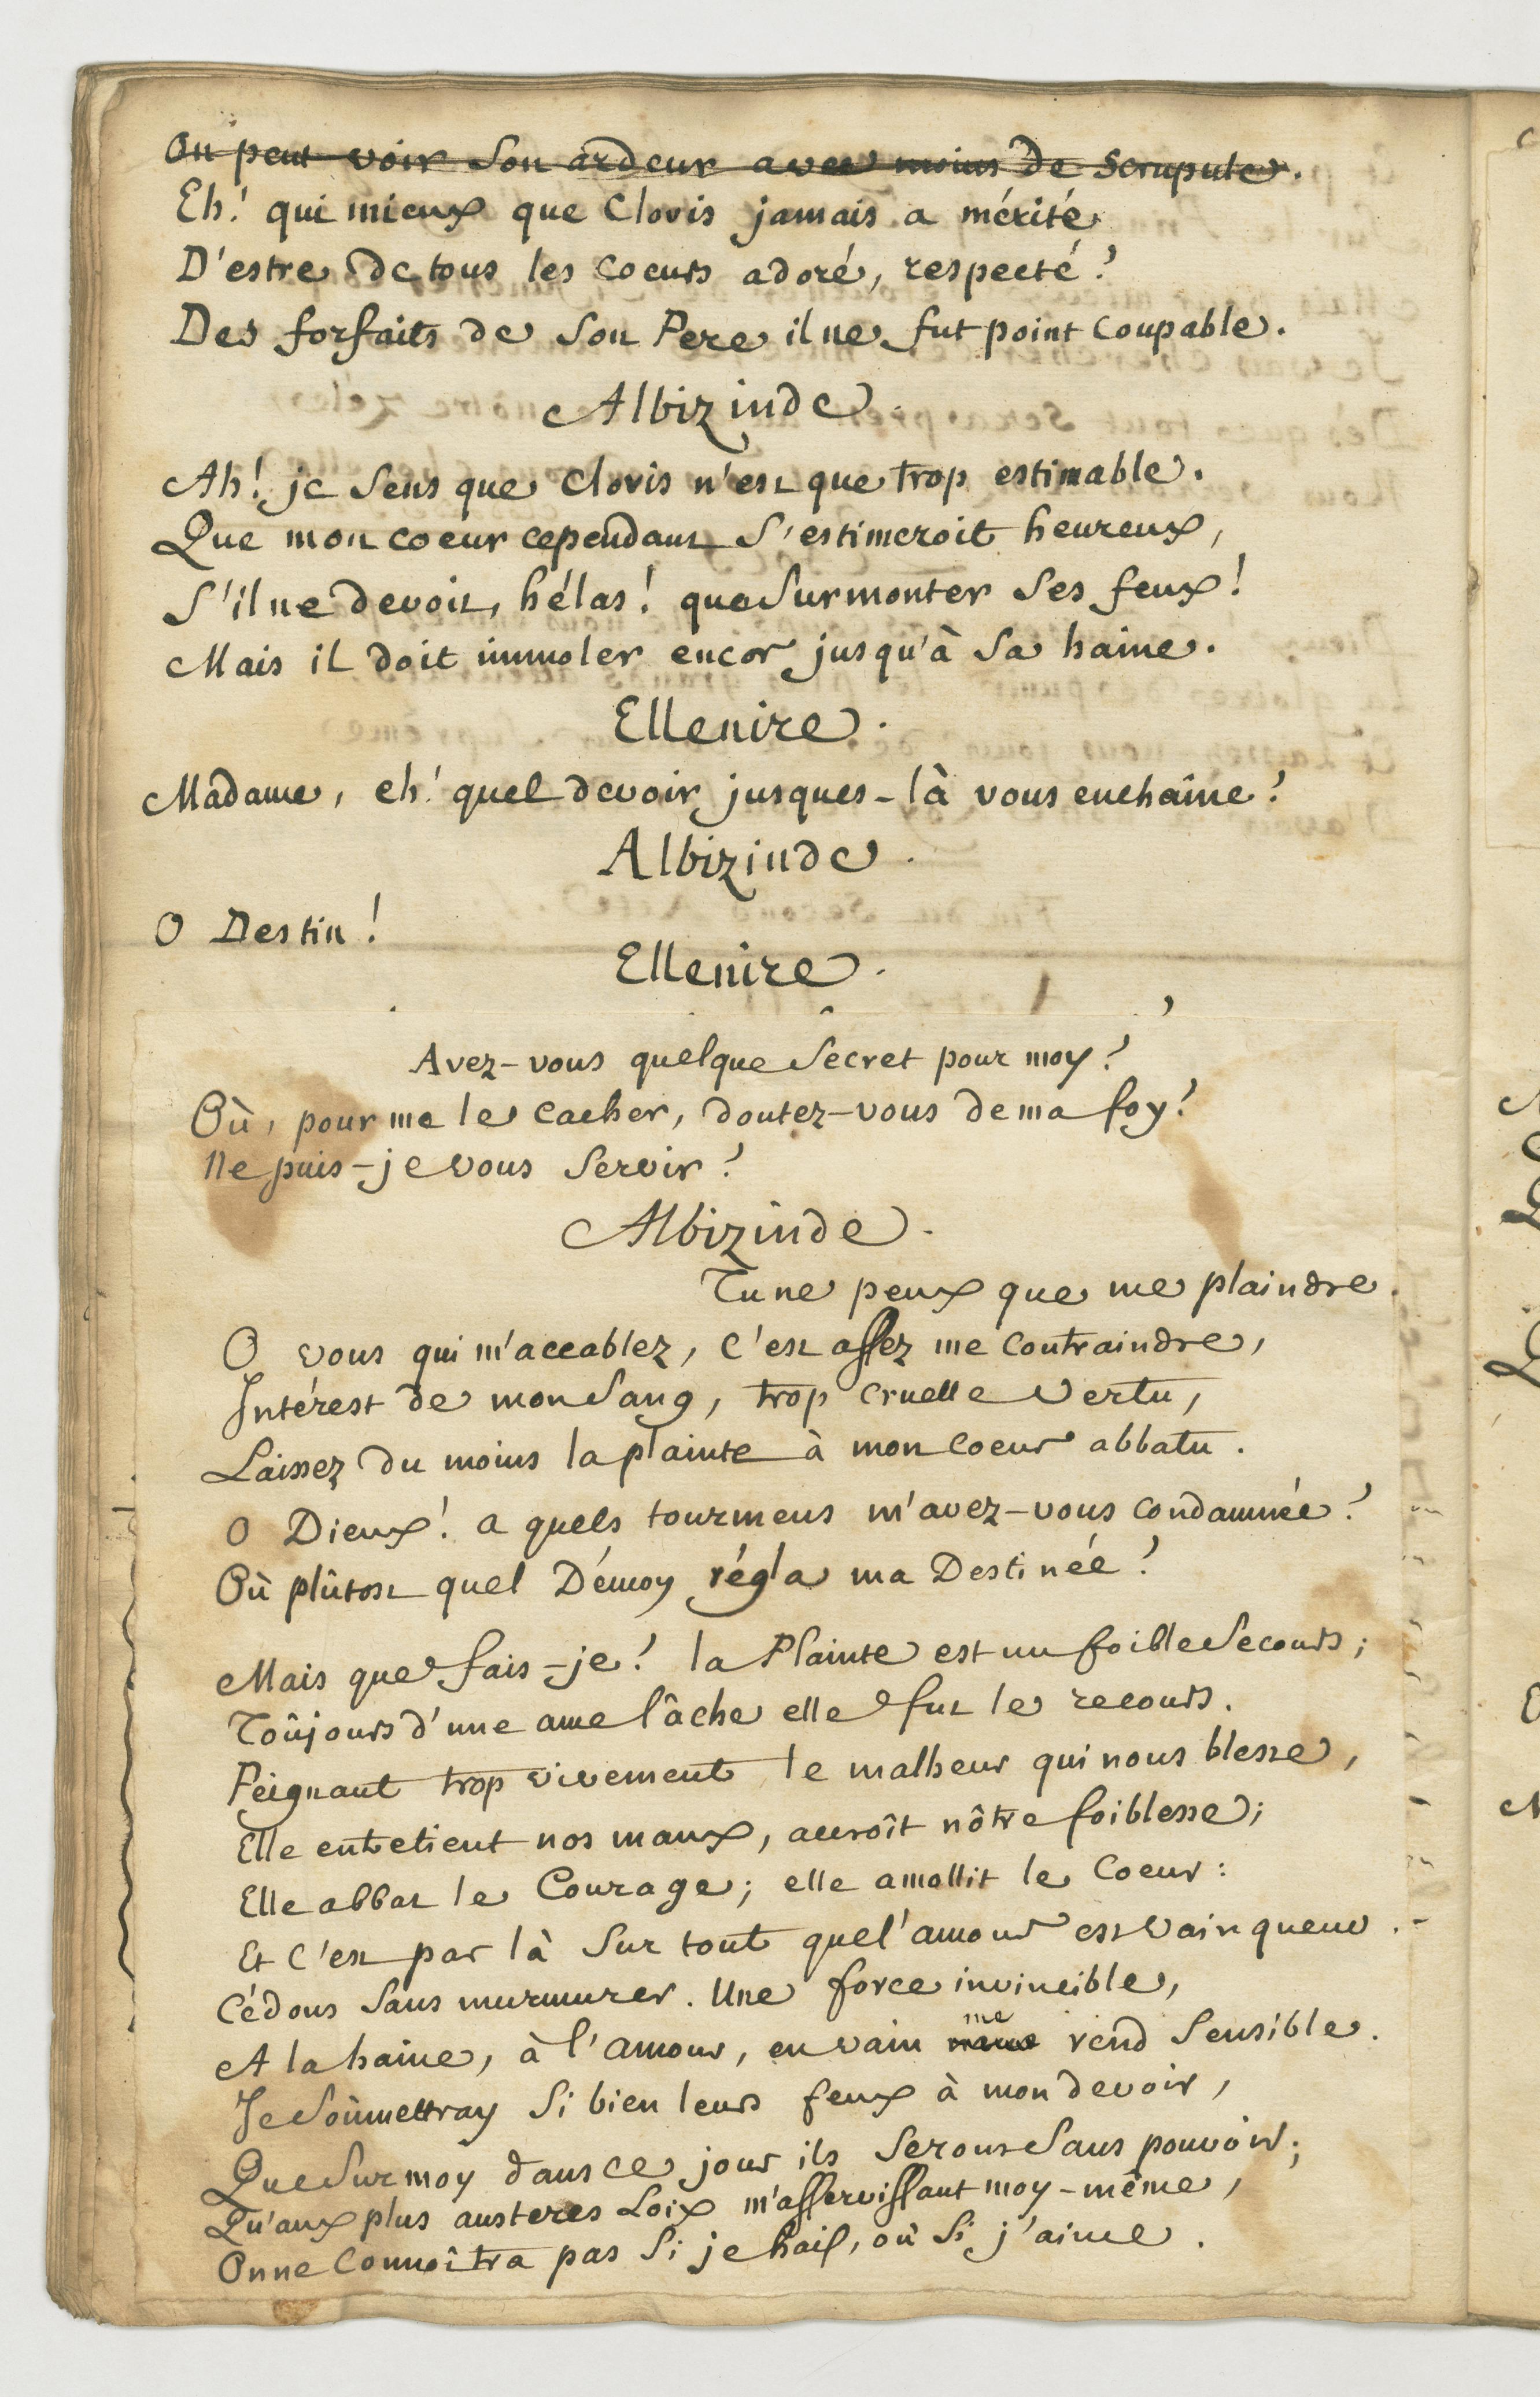 On peut voir son ardeur avec moins de scrupule.
Eh! qui mieux que Clovis jamais a mérité
D'estre de tous les coeurs adoré, respecté?
Des forfaits de son Pere il ne fut point coupable.
Albizinde.
Ah! je sens que Clovis n'est que trop estimable.
Que mon coeur cependant s'estimeroit heureux,
S'il ne devoit, hélas! que surmonter ses feux!
Mais il doit immoler encor jusqu'à sa haine.
Ellenire.
Madame, eh! quel devoir jusques-là vous enchaîne?
Albizinde.
O Destin!
Ellenire.
Avez-vous quelque secret pour moy?
Où, pour me le cacher, doutez-vous de ma foy?
Ne puis-je vous servir?
Albizinde.
Tu ne peux que me plaindre.
O vous qui m'accablez, c'est assez me contraindre,
Intérest de mon sang, trop cruelle vertu,
Laissez du moins la plainte à mon coeur abbatu.
O Dieux! a quels tourmens m'avez-vous condamnée?
Où plûtost quel Démon régla ma Destinée?
Mais que fais-je? la Plainte est un foible secours;
Toûjours d'une ame lâche elle fut le recours.
Peignant trop vivement le malheur qui nous blesse,
Elle entretient nos maux, accroît nôtre foiblesse;
Elle abbat le Courage; elle amollit le Coeur:
Et c'est par là sur tout que l'amour est vainqueur.
Cédons sans murmurer. Une force invincible,
A la haine, à l'amour, en vain me rend sensible.
Je soûmettray si bien leurs feux à mon devoir,
Que sur moy dans ce jour ils seront sans pouvoir;
Qu'aux plus austeres Loix m'asservissant moy-même,
On ne connoîtra pas si je haïs, où si j'aime.